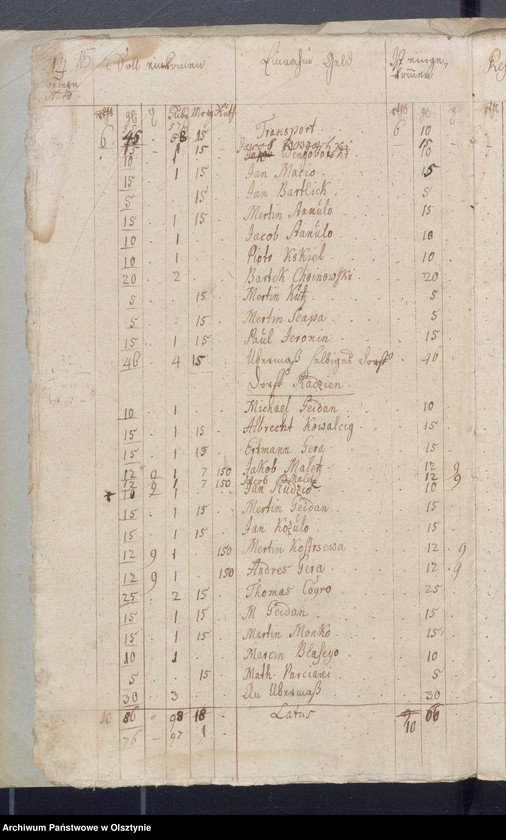 15 Soll einkommen Einnahm Geld Ist eingekommen
Transport 6 10
15 1 15 Jacob 15
10 1 10
15 1 15 Jan Macio 15
5 15 Jan Bartlick 5
15 1 15 Mertin 15
10 1 Jacob 10
10 1 Piotr 10
20 2 Bartek Choinowski 20
5 15 Mertin Kutz 5
5 15 Mertin 5
15 1 15 Paul Jeronin 15
46 4 15 Ubermaß selbigen Dorffs 46
Dorff Radzien
10 1 Michael Geidan 10
15 1 15 Albrecht Kowalczig 15
15 1 15 Ertmann Gera 15
12 9 1 7 150 Jakob Malek 12 9
12 9 1 7 150 12 9
10 1 Jan Rudzio 10
15 1 15 Mertin Geidan 15
15 1 15 Jan Kozulo 15
12 9 1 150 Mertin 12 9
12 9 1 150 Andres Gera 12 9
25 2 15 Thomas Coyro 25
15 1 15 M Geidan 15
15 1 15 Martin Monko 15
10 1 Marcin Blaseyo 10
5 15 Math Parciani 5
30 3 An Ubermaß 30
10 86 98 18 Latus 10 66
76 97 1
Archiwum Państwowe w Olsztynie